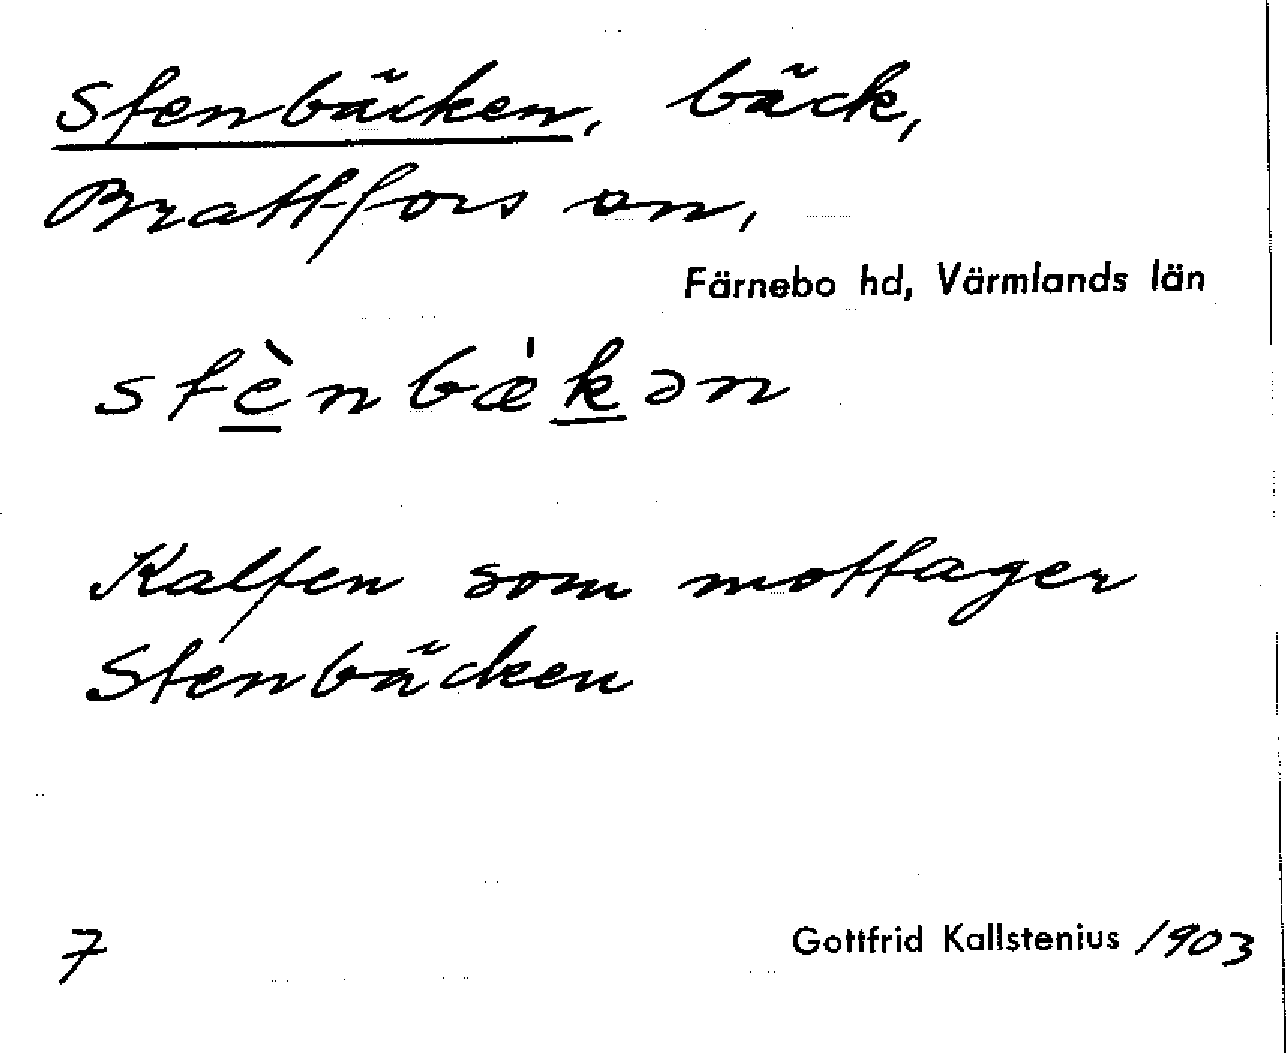 Stenbäcken, bäck,
Brattfors sn,
Färnebo hd, Värmlands län
stènbǽkən
Kalfen som mottager
Stenbäcken
7
Gottfrid Kallstenius 1903